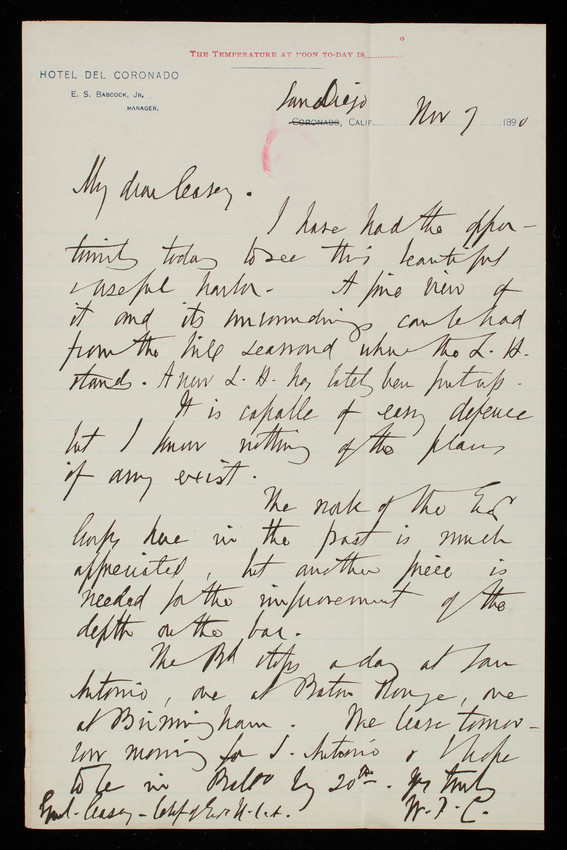 THE TEMPERATURE AT NOON TO-DAY IS °
HOTEL DEL CORONADO
E. S. BABCOCK, JR.
MANAGER.
San Diego
CORONADO, CALIF. Nov 7 1890
My dear Casey.
I have had the oppor-
tunity today to see this beautiful
useful harbor. A fine view of
it and its surroundings can be had
from the hill seaward where the L. H.
stands. A new L. H. has lately been put up.
It is capable of easy defence
but I know nothing of the plans
if any exist.
The work of the Engr
Corps here in the past is much
appreciated, but another piece is
needed for the improvement of the
depth on the bar.
The Bd stops a day at San
Antonio, one at Baton Rouge, one
at Birmingham. We leave tomor-
row morning for S. Antonio & I hope
to be in Balto by 20th. Yrs truly
Genl. Casey - Chief of Engrs U.S.A. W. P. C.